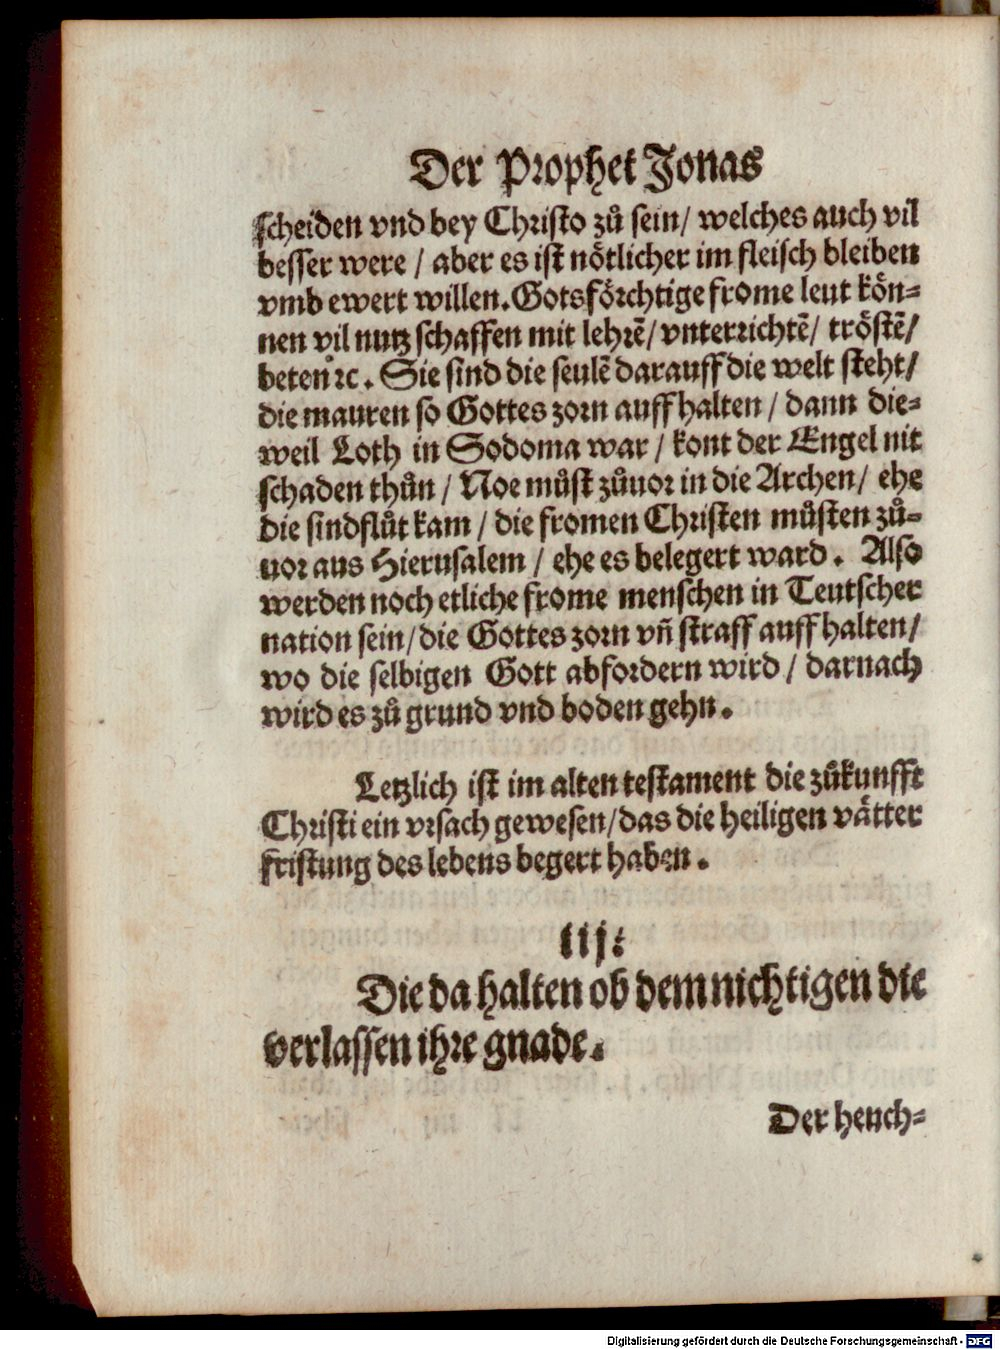 Der Prophet Jonas
scheiden vnd bey Christo zů sein/ welches auch vil
besser were / aber es ist nötlicher im fleisch bleiben
vmb ewert willen. Gotsförchtige frome leut kön⸗
nen vil nutz schaffen mit lehrē/ vnterrichtē/ tröstē/
beten ꝛc. Sie sind die seulē darauff die welt steht/
die mauren so Gottes zorn auffhalten / dann die⸗
weil Loth in Sodoma war / kont der Engel nit
schaden thůn / Noe můst zůuor in die Archen/ ehe
die sindflůt kam / die fromen Christen můsten zů⸗
uor aus Hierusalem / ehe es belegert ward. Also
werden noch etliche frome menschen in Teutscher
nation sein/ die Gottes zorn vñ straff auffhalten/
wo die selbigen Gott abfordern wird / darnach
wird es zů grund vnd boden gehn.
Letzlich ist im alten testament die zůkunfft
Christi ein vrsach gewesen/ das die heiligen vätter
fristung des lebens begert haben.
iij:
Die da halten ob dem nichtigen die
verlassen ihre gnade.
Der heuch⸗
Digitalisierung gefördert durch die Deutsche Forschungsgemeinschaft - DFG